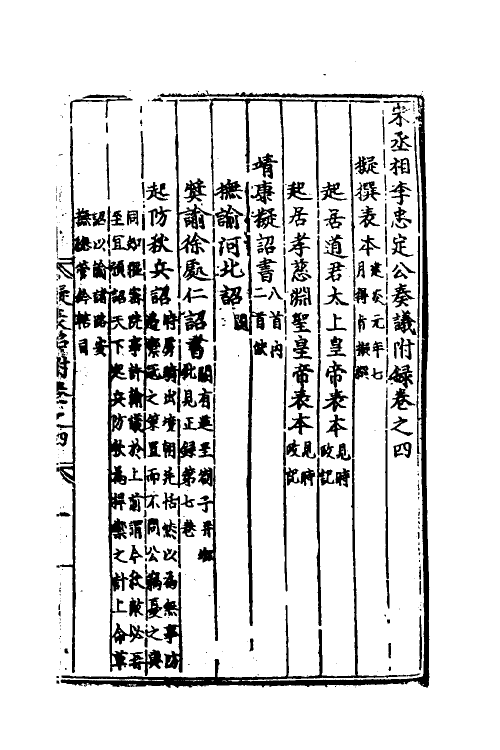 宋丞相李忠定公奏議附錄卷之四
擬撰表本 建炎元年七月得肯擬撰
起居道君太上皇帝表本 見時政記
起居孝慈淵聖皇帝表本 見時政記
靖康擬詔書 八首內二首
撫諭河北詔 闕
獎諭徐處仁詔書 闕有 至劄子并 此見正錄第七卷
起防秋兵詔 時虜騎出境朝廷恬然以為無事防邊禦冦之策置而不問公竊憂之與
同知樞密院事許翰議於上前謂今秋賊必再至宜預詔天下起兵防秋為捍禦之計上命草
詔以諭諸路安撫 管鈐轄司
擬表詔附卷之四